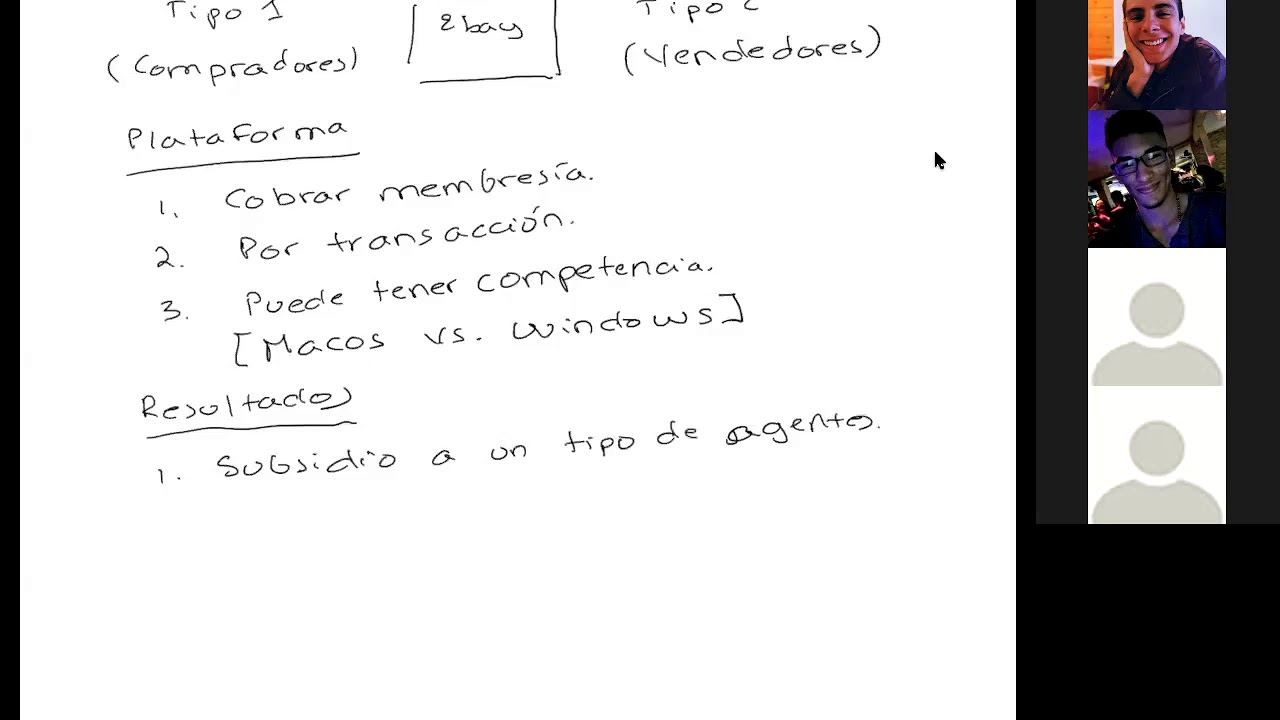 Tipo 1
ebay
Tipo 2
(Compradores)
(Vendedores)
Plataforma
1. Cobrar membresía.
2. Por transacción.
3. Puede tener competencia.
[Macos vs. Windows]
Resultados
1. Subsidio a un tipo de agentes.